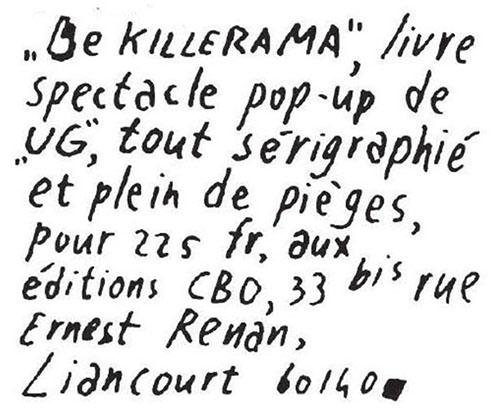 „Be KILLERAMA", livre
spectacle pop-up de
„UG", tout sérigraphié
et plein de pièges,
pour 225 fr, aux
éditions CBO, 33 bis rue
Ernest Renan,
Liancourt 60140